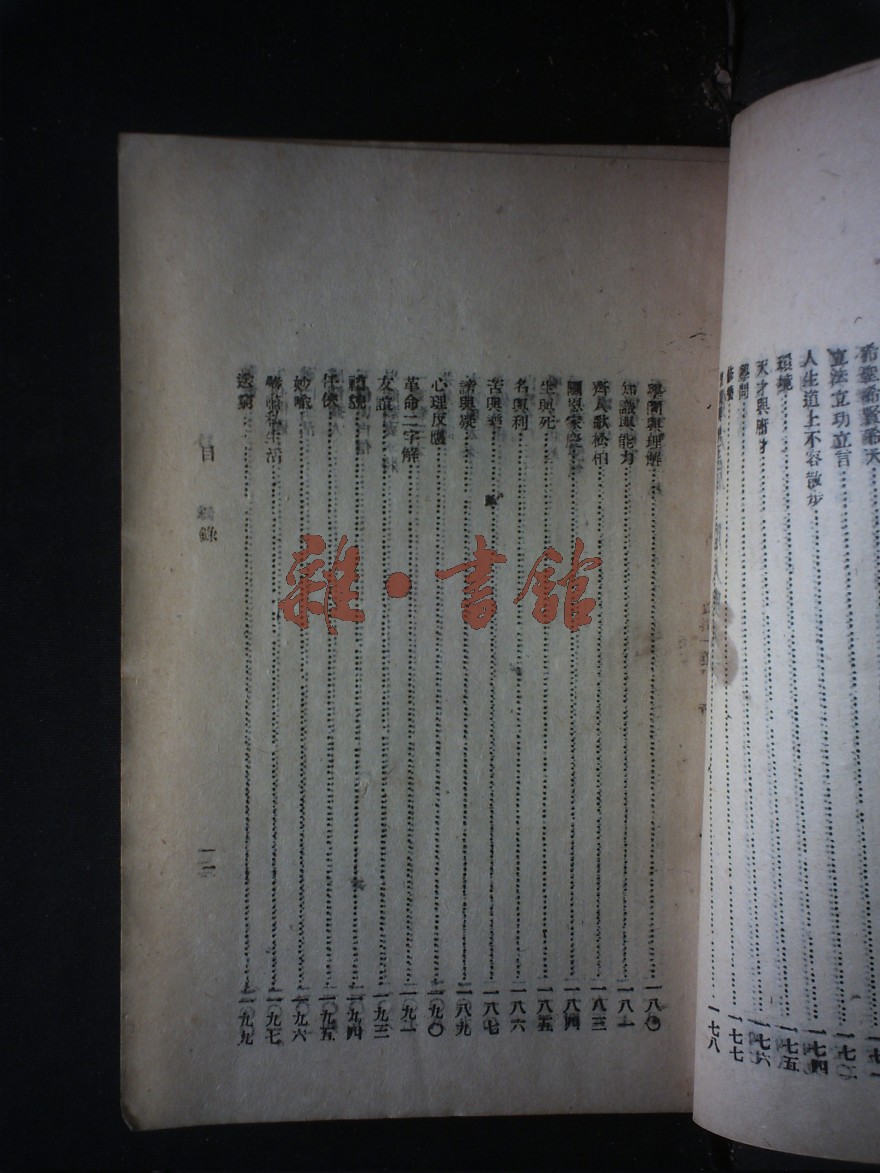 希聖希賢希天
立法立功立言……一七二
人生道上不容散步……一七四
環境……一七五
天才與庸才……一七六
學問……一七七
一七八
學問與理解……一八〇
知識與能力……一八一
齊人歌松柏……一八三
一八四
生與死……一八五
名與利……一八六
苦與樂……一八七
一八九
心理反應……一九〇
革命二字解
友誼……一九三
一九四
任俠……一九五
妙喻……一九六
私生活……一九七
送窮……一九九
目錄
雜·書館